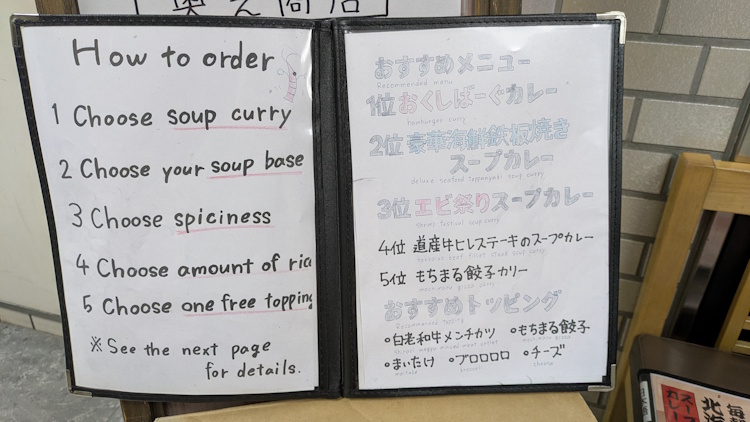 奥芝商店
How to order
1 Choose soup curry
2 Choose your soup base
3 Choose spiciness
4 Choose amount of ric
5 Choose one free topping
※See the next page
for details.
おすすめメニュー
Recommended menu
1位 おくしばーぐカレー
hamburger curry
2位 豪華海鮮鉄板焼き
スープカレー
deluxe seafood teppanyaki soup curry
3位 エビ祭りスープカレー
Shrimp festival soup curry
4位 道産牛ヒレステーキのスープカレー
5位 もちまる餃子カリー
おすすめトッピング
Recommended Topping
•白老和牛メンチカツ •もちまる餃子
•まいたけ •ブロロロロ •チーズ
cheese
北海
スープ
カレー